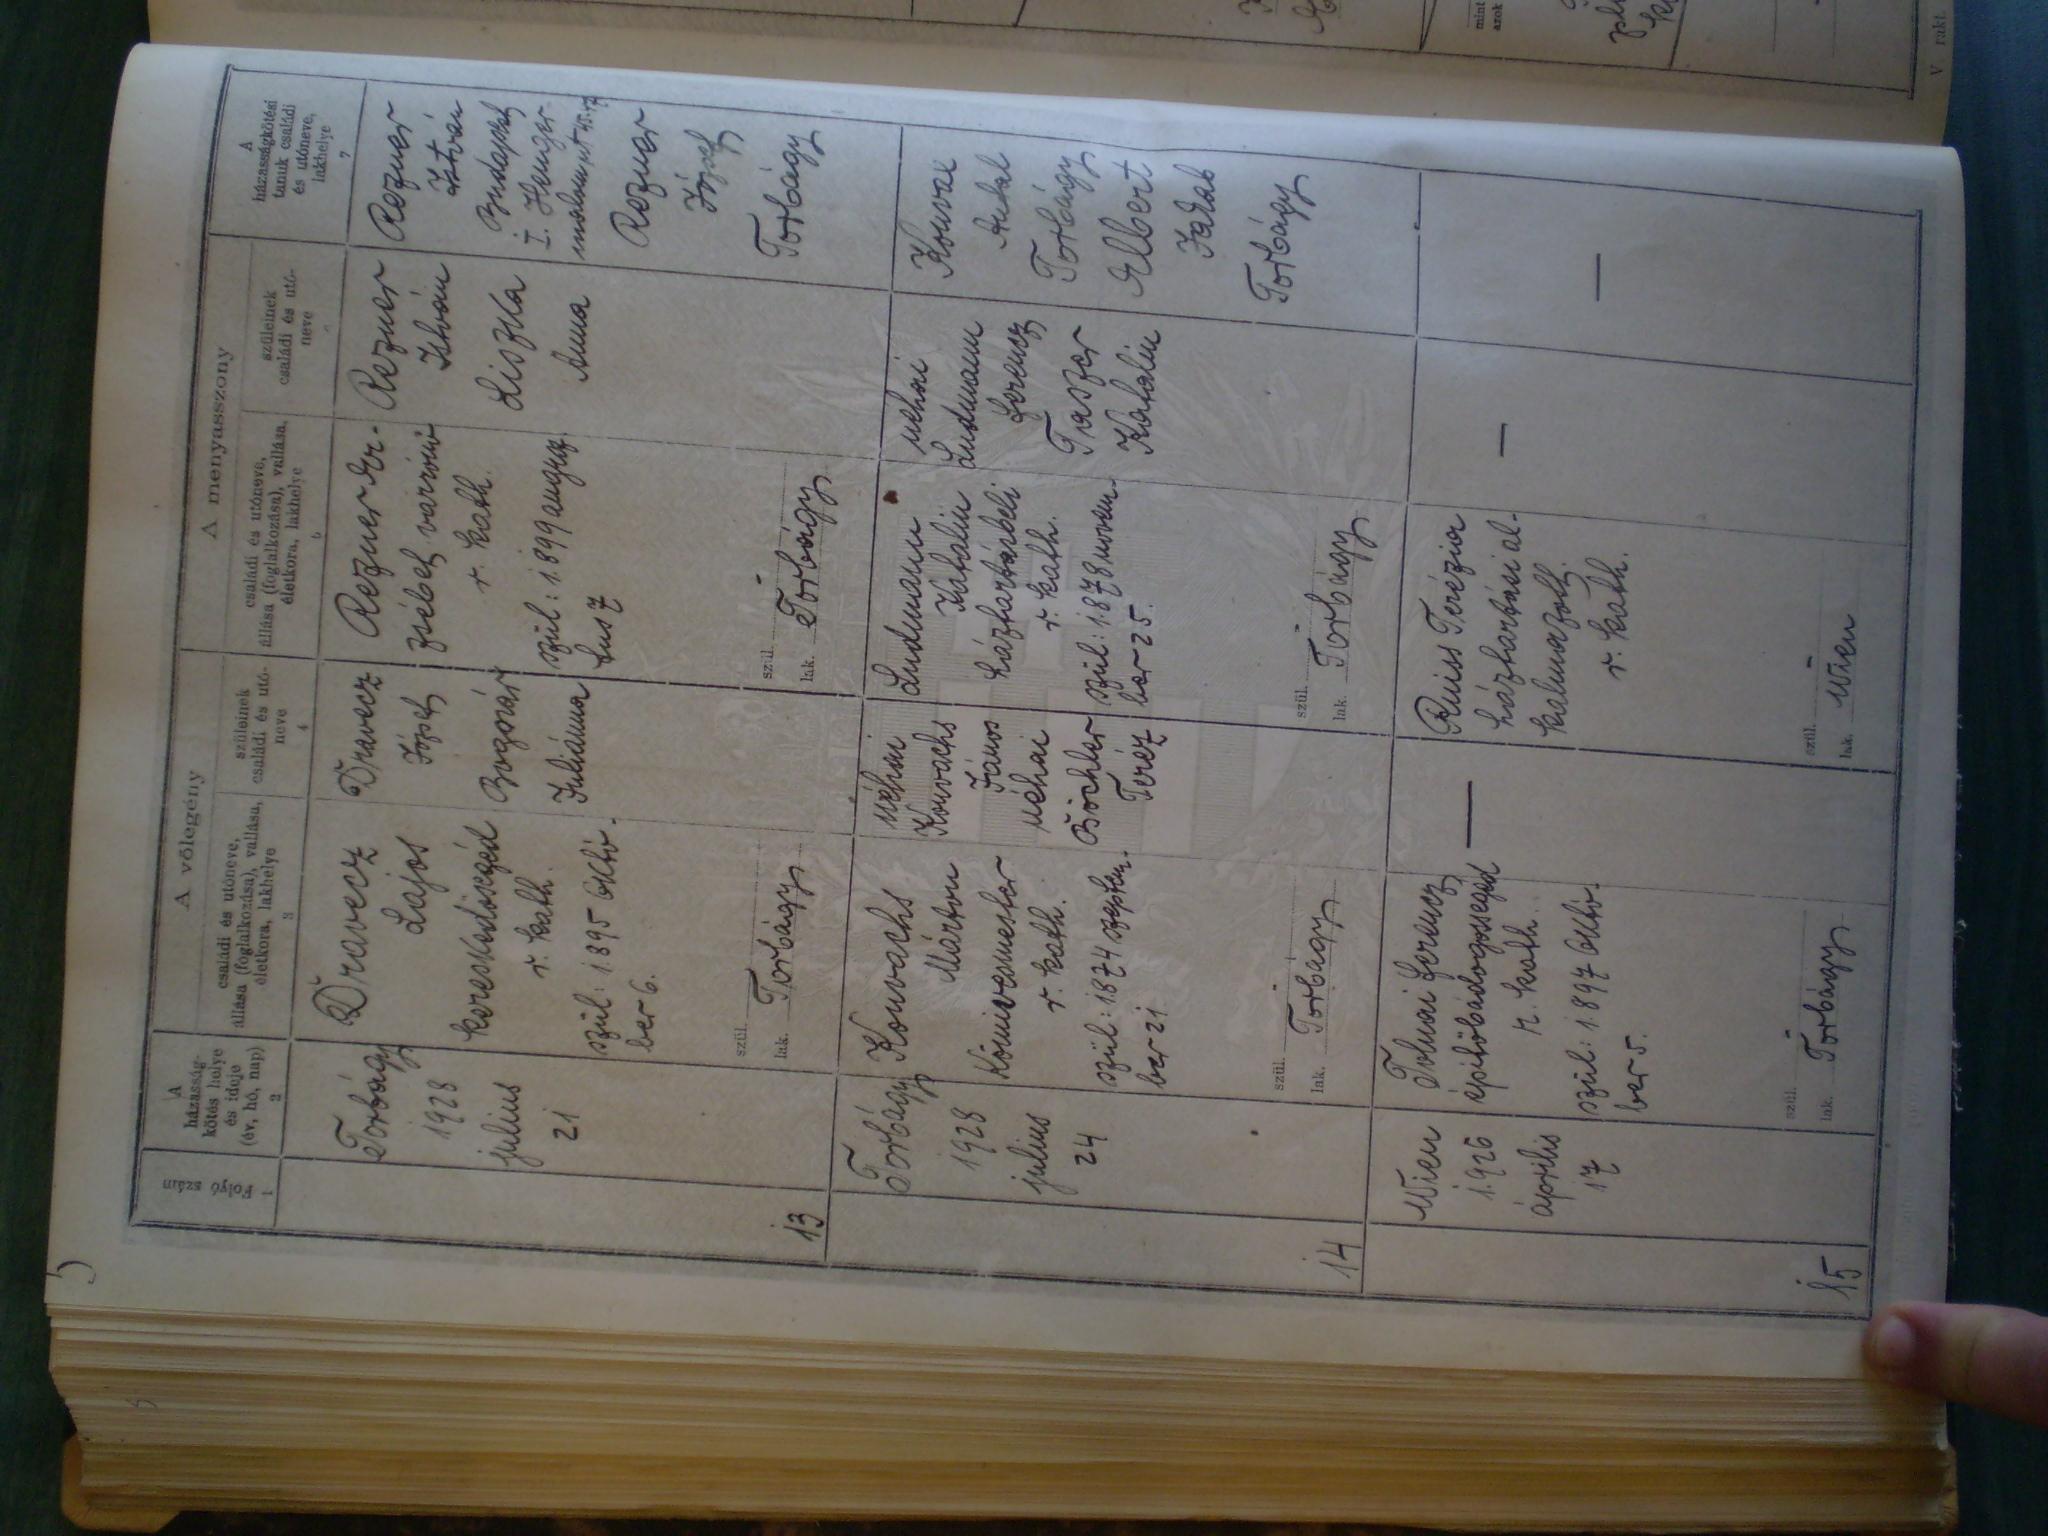 A vőlegény
A menyasszony
1
folyó szám
A
házasság-
kötés helye
és ideje
(év, hó, nap)
2
családi és utóneve,
állása (foglalkozása), vallása,
életkora, lakhelye
3
szüleinek
családi és utó-
neve
4
családi és utóneve,
állása (foglalkozása), vallása,
életkora, lakhelye
5
szüleinek
családi és utó-
neve
A
házasságkötési
tanuk családi
és utóneve,
lakhelye
7
13
Torbágy
1928
julius
21
Dravecz
Lajos
kereskedősegéd
r. kath.
szül: 1895 októ-
ber 6.
szül.
lak. Torbágy
Dravecz
József
Bognár
Juliánna
Rezner Er-
zsébet varrónő
r. kath.
szül: 1899 augusz-
tus 7
szül.
lak. Torbágy
Rezner
István
Liszka
Anna
Rezner
István
Budapest
I. Hunger-
Rezner
József
Torbágy
14
Torbágy
1928
julius
24
Kowachs
Márton
Kőmivesmester
r. kath.
szül: 1874 szeptem-
ber 21
szül.
lak. Torbágy
néhai
Kowachs
János
néhai
Büchler
Teréz
Ludmann
Katalin
háztartásbeli
r. kath.
szül: 1878 novem-
ber 25.
szül.
lak Torbágy
néhai
Ludmann
Ferencz
Traszer
Katalin
Antal
Torbágy
Elbert
Jakab
Torbágy
15
Wien
1926
április
17
Tolnai Ferencz
épitőbádogossegéd
r. kath.
szül: 1897 októ-
ber 5.
szül.
lak. Torbágy
—
Ruiss Terézia
háztartási al-
kalmazott.
r. kath.
szül.
lak. Wien
—
—
mint
azok
V. rakt.